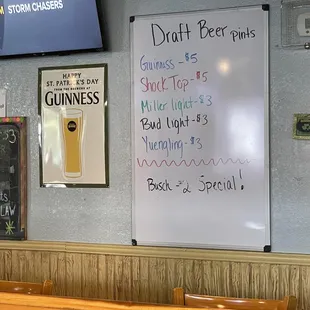 STORM CHASERS
HAPPY
ST. PATRICK'S DAY
FROM THE BREWERS OF
GUINNESS
Draft Beer pints
Guinniss - $5
Shock Top - $5
Miller light - $3
Bud light - $3
Yuengling - $3
Busch - $2 Special!
LAW